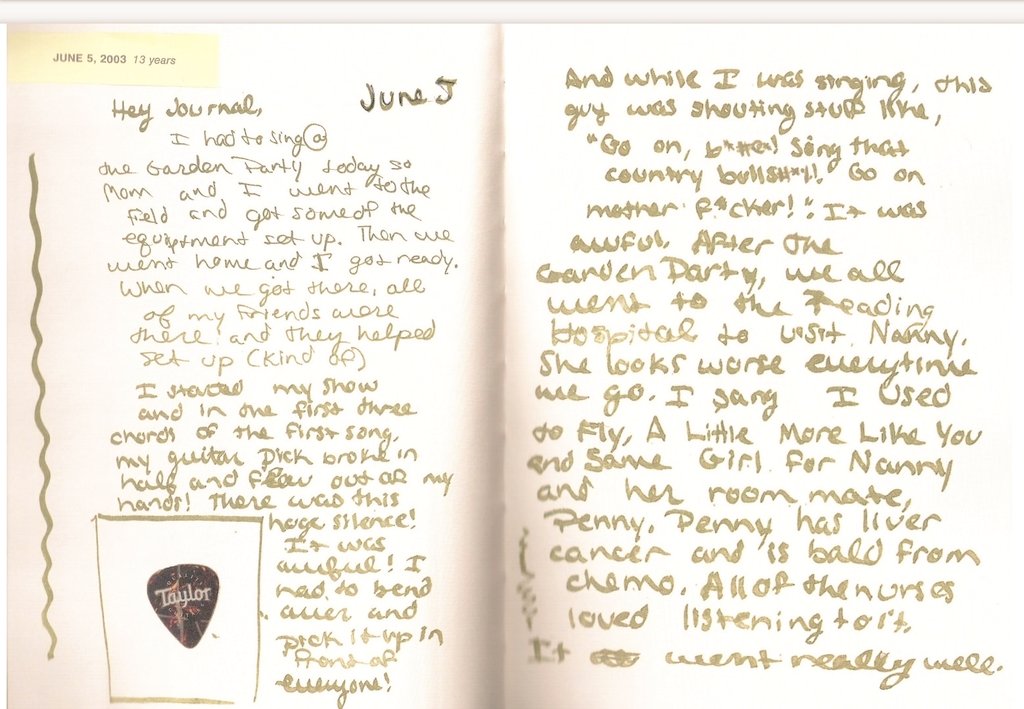 JUNE 5, 2003 13 years
June 5
Hey Journal,
I had to sing @
the Garden Party today so
Mom and I went to the
field and got some of the
equiptment set up. Then we
went home and I got ready.
When we got there, all
of my friends were
there and they helped
set up (kind of)
I started my show
and in the first three
chords of the first song,
my guitar pick broke in
half and flew out of my
hands! There was this
huge silence!
It was
awful! I
had to bend
over and
pick it up in
front of
everyone!
Taylor
And while I was singing, this
guy was shouting stuff like,
"Go on, b**#e*! Sing that
country bullsh*t!" Go on
mother f*cker!". It was
awful. After the
Garden Party, we all
went to the Reading
Hospital to visit Nanny.
She looks worse everytime
we go. I sang I Used
to Fly, A Little More Like You
and Same Girl for Nanny
and her room mate,
Penny. Penny has liver
cancer and is bald from
chemo. All of the nurses
loved listening to it.
It went really well.